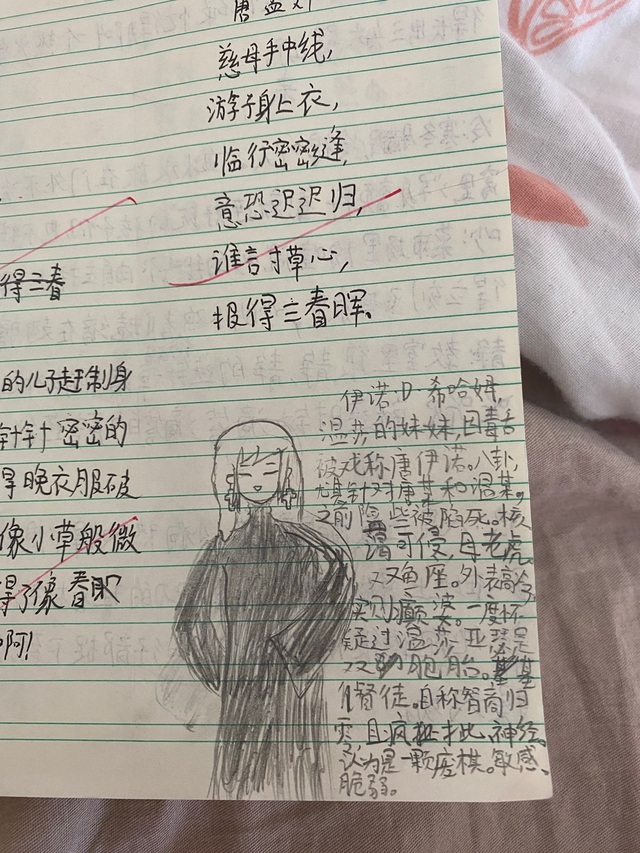 唐 孟郊
慈母手中线,
游子身上衣,
临行密密缝,
意恐迟迟归,
谁言寸草心,
报得三春晖。
得三春
的儿子赶制身
针针密密的
得晚衣服破
像小草般微
得了像春
啊!
伊诺·D·希哈姆,
温莎的妹妹,因毒舌
被戏称唐伊诺。八卦,
针对唐某和温某。
之前险些被陷死。核
可侵,母老虎,
双鱼座。外表高冷,
实则癫婆。一度怀
疑过温莎、亚瑟是
双胞胎。基
督徒。自称智商归
零,且疯批才比、神经。
认为是一颗废棋。敏感、
脆弱。